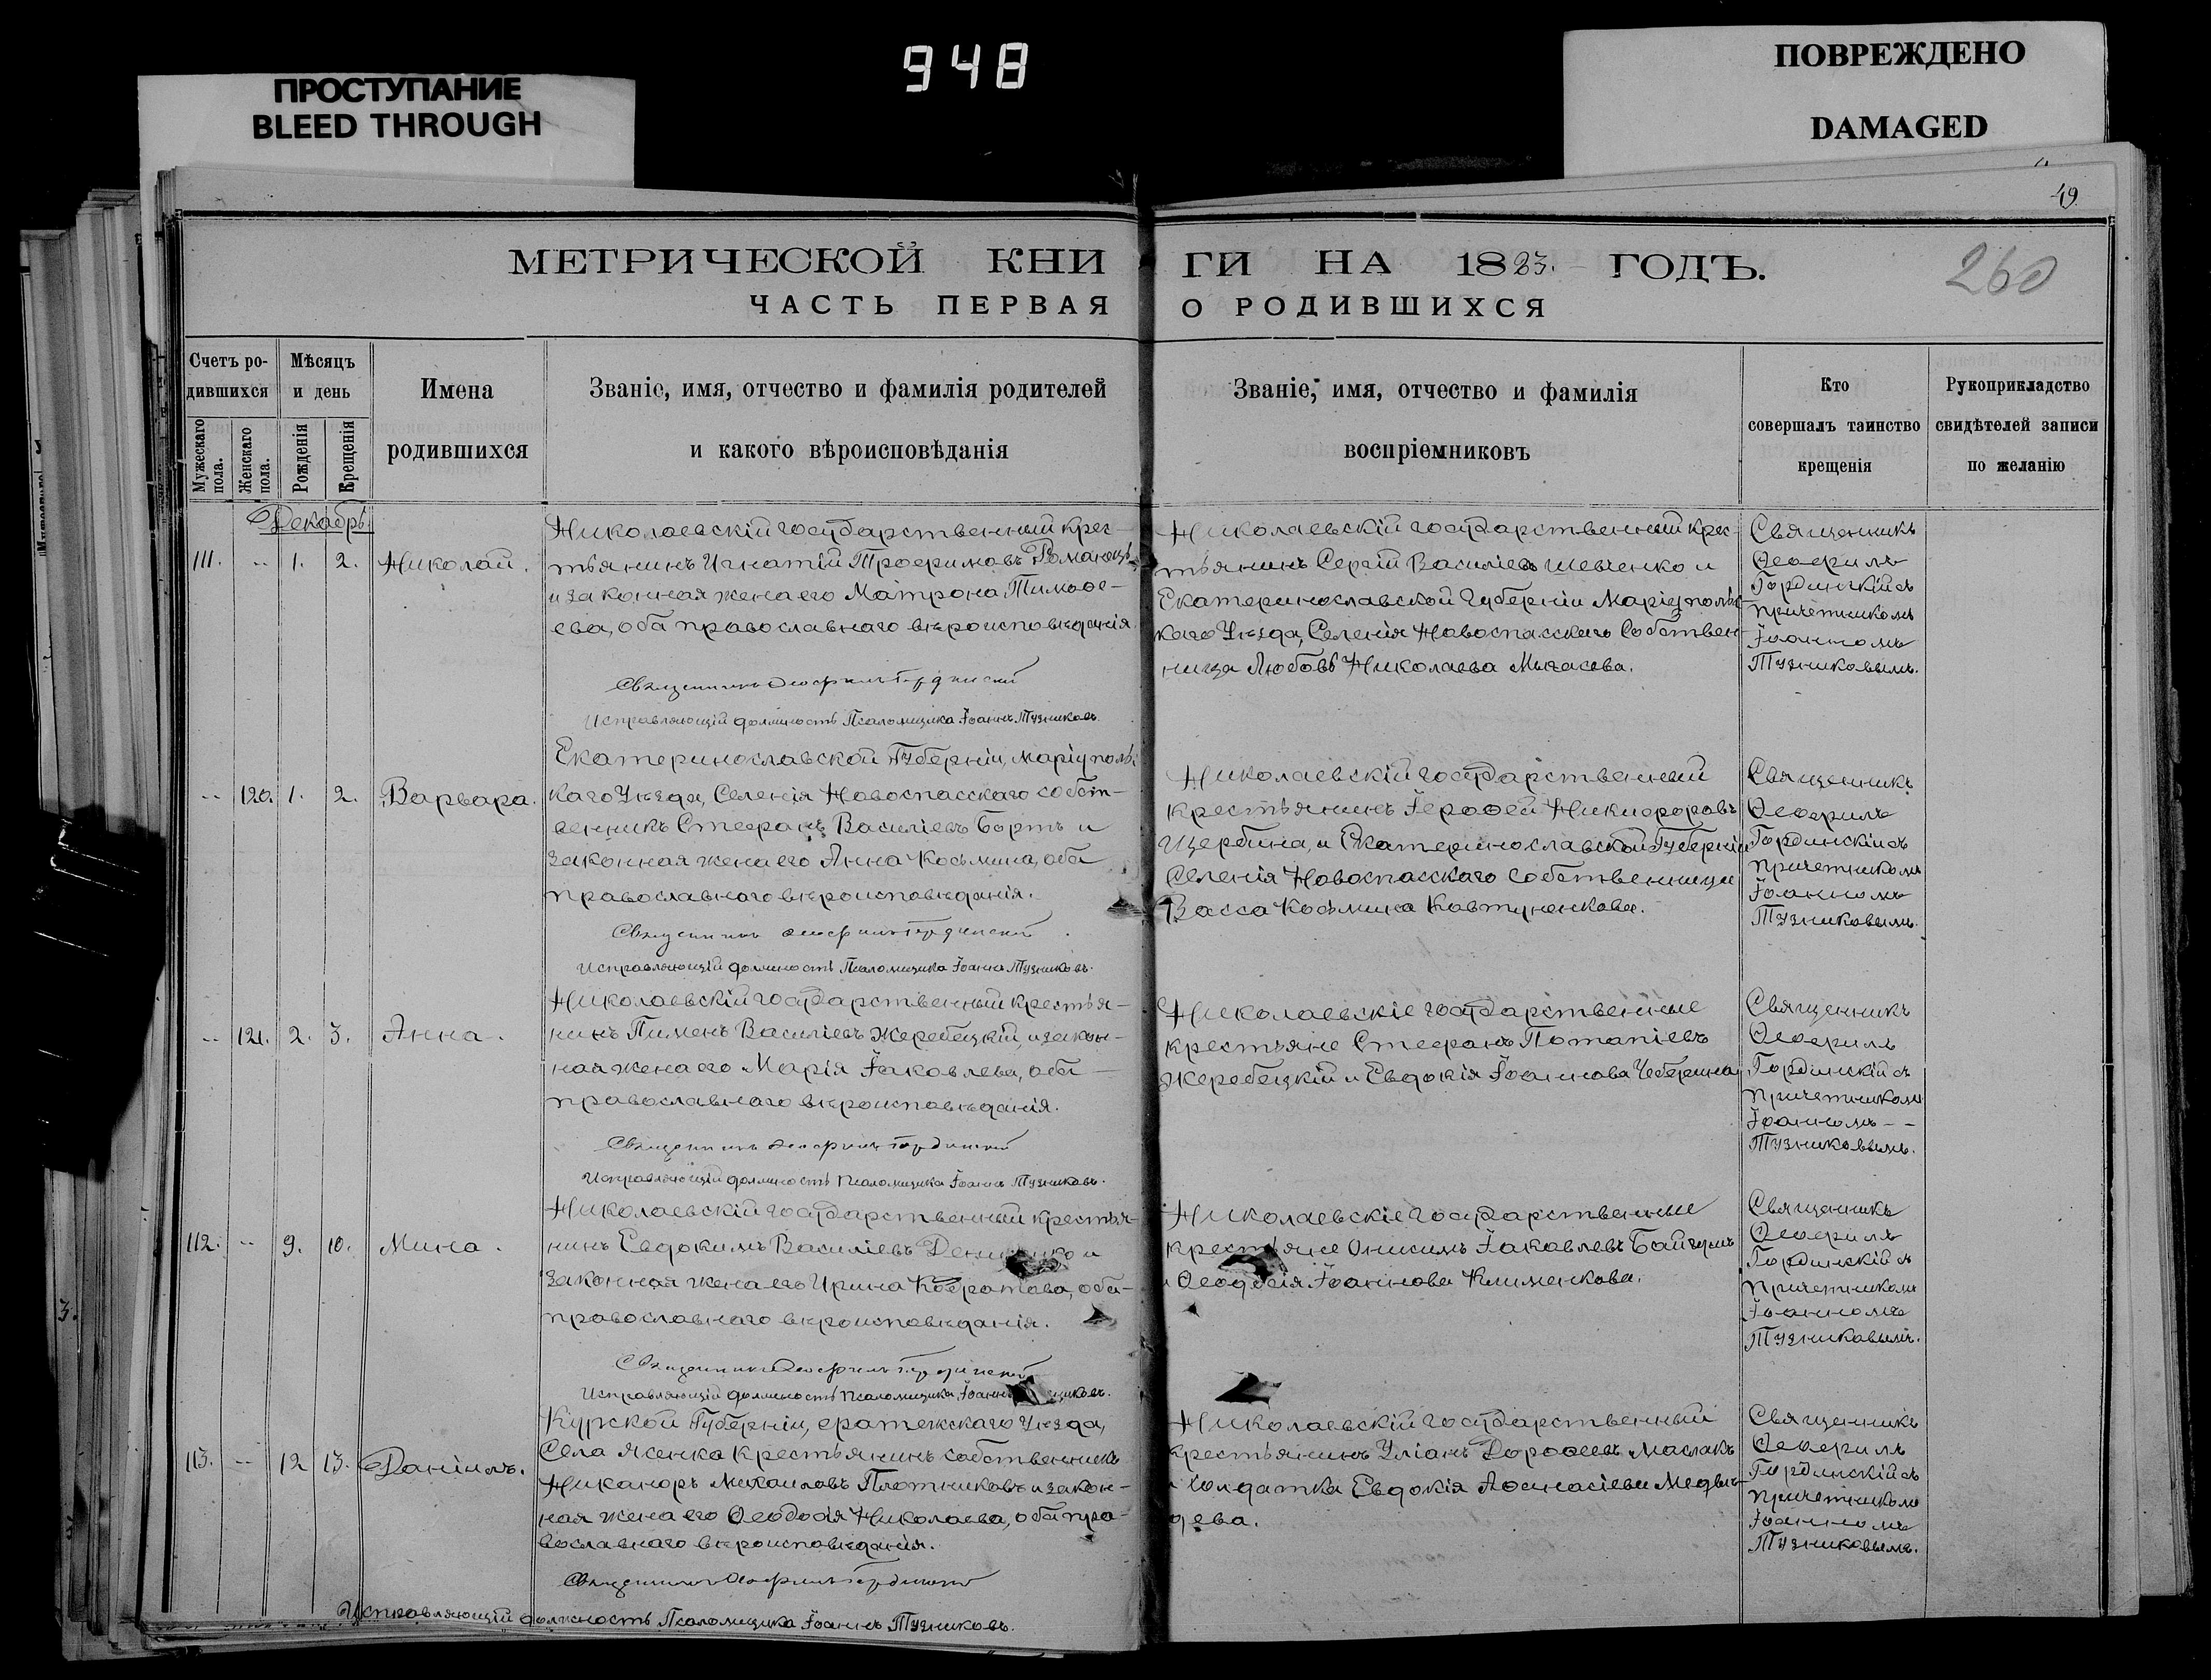 948
ПРОСТУПАНИЕ
BLEED THROUGH
ПОВРЕЖДЕНО
DAMAGED
49
260
МЕТРИЧЕСКОЙ КНИ
ГИ НА 1883. ГОДЪ.
ЧАСТЬ ПЕРВАЯ
О РОДИВШИХСЯ
Счетъ ро-
дившихся
Мужескаго пола.
Женскаго пола.
Мѣсяцъ
и день
Рожденія
Крещенія
Имена
родившихся
Званіе, имя, отчество и фамилія родителей
и какого вѣроисповѣданія
Званіе, имя, отчество и фамилія
воспріемниковъ
Кто
совершалъ таинство
крещенія
Рукоприкладство
свидѣтелей записи
по желанію
Декабрь
111. -- 1. 2. Николай.
Николаевскій государственный крес-
тьянинъ Игнатій Трофимовъ Романецъ
и законная жена его Матрона Тимофе-
ева, оба православнаго вѣроисповѣданія.
Священникъ Ѳеофилъ Гординскій
Исправляющій должность Псаломщика Іоаннъ Тузниковъ.
Николаевскій государственный крес-
тьянинъ Сергій Василіевъ Шевченко и
Екатеринославской Губерніи Маріупольс-
каго Уѣзда, Селенія Новоспасскаго Собствен-
ница Любовь Николаева
Священникъ
Ѳеофилъ
Гординскій съ
причетникомъ
Іоанномъ
Тузниковымъ.
-- 120. 1. 2. Варвара.
Екатеринославской Губерніи, Маріупольс-
каго Уѣзда, Селенія Новоспасскаго собст-
венникъ Стефанъ Василіевъ Бортъ и
законная жена его Анна Косьмина, оба
православнаго вѣроисповѣданія.
Священникъ Ѳеофилъ Гординскій
Исправляющій должность Псаломщика Іоаннъ Тузниковъ.
Николаевскій государственный
крестьянинъ Іероѳей Никифоровъ
Щербина, и Екатеринославской Губерніи
Селенія Новоспасскаго собственница
Васса Косьмина Ковтуненкова.
Священникъ
Ѳеофилъ
Гординскій съ
причетникомъ
Іоанномъ
Тузниковымъ.
-- 121. 2. 3. Анна.
Николаевскій государственный крестья-
нинъ Пименъ Василіевъ Жеребецкій, и закон-
ная жена его Марія Іаковлева, оба
православнаго вѣроисповѣданія.
Священникъ Ѳеофилъ Гординскій
Исправляющій должность Псаломщика Іоаннъ Тузниковъ.
Николаевскіе государственные
крестьяне Стефанъ Потапіевъ
Жеребецкій и Евдокія Іоаннова
Священникъ
Ѳеофилъ
Гординскій съ
причетникомъ
Іоанномъ --
Тузниковымъ.
112. -- 9. 10. Мина.
Николаевскій государственный крестья-
нинъ Евдокимъ Василіевъ и
законная жена его Ирина оба
православнаго вѣроисповѣданія.
Священникъ Ѳеофилъ Гординскій
Исправляющій должность Псаломщика Іоаннъ
Николаевскіе государственные
крестьяне Онисимъ Іаковлевъ
и Ѳеодосія Іоаннова Клименкова.
Священникъ
Ѳеофилъ
Гординскій съ
Причетникомъ
Іоанномъ
Тузниковымъ.
113. -- 12 13. Даніилъ.
Курской Губерніи, Уѣзда,
Села Ясенка крестьянинъ собственникъ
Никаноръ Михаиловъ Плотниковъ и закон-
ная жена его Ѳеодосія Николаева, оба пра-
вославнаго вѣроисповѣданія.
Священникъ Ѳеофилъ Гординскій
Исправляющій должность Псаломщика Іоаннъ Тузниковъ.
Николаевскій государственный
крестьянинъ Уліанъ Дороѳеевъ Маслакъ
и Солдатка Евдокія Аѳанасіева Медвѣ-
дева.
Священникъ
Ѳеофилъ
Гординскій съ
причетникомъ
Іоанномъ
Тузниковымъ.